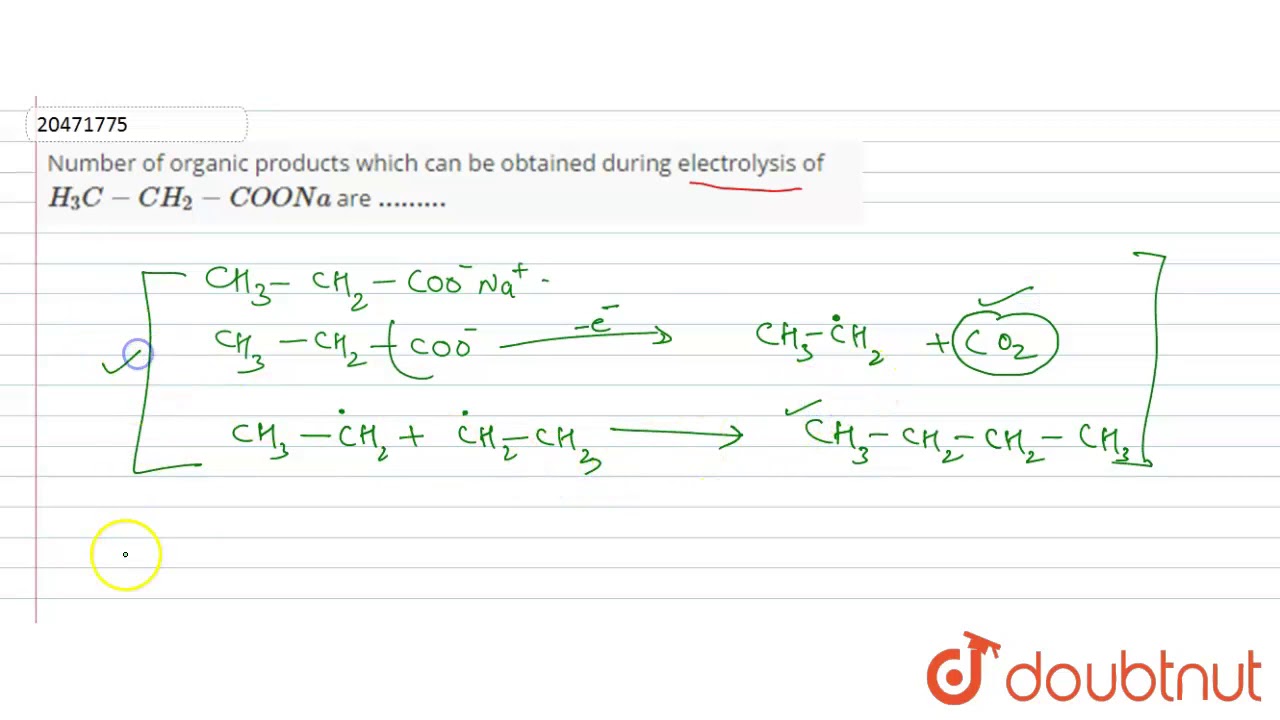 20471775
Number of organic products which can be obtained during electrolysis of
H₃C − CH₂ − COONa are .........
CH₃ − CH₂ − COO⁻ Na⁺ -
CH₃ − CH₂ − COO⁻ −e⁻ → CH₃ − ĊH₂ + CO₂
CH₃ − ĊH₂ + ĊH₂ − CH₃ → CH₃ − CH₂ − CH₂ − CH₃
doubtnut